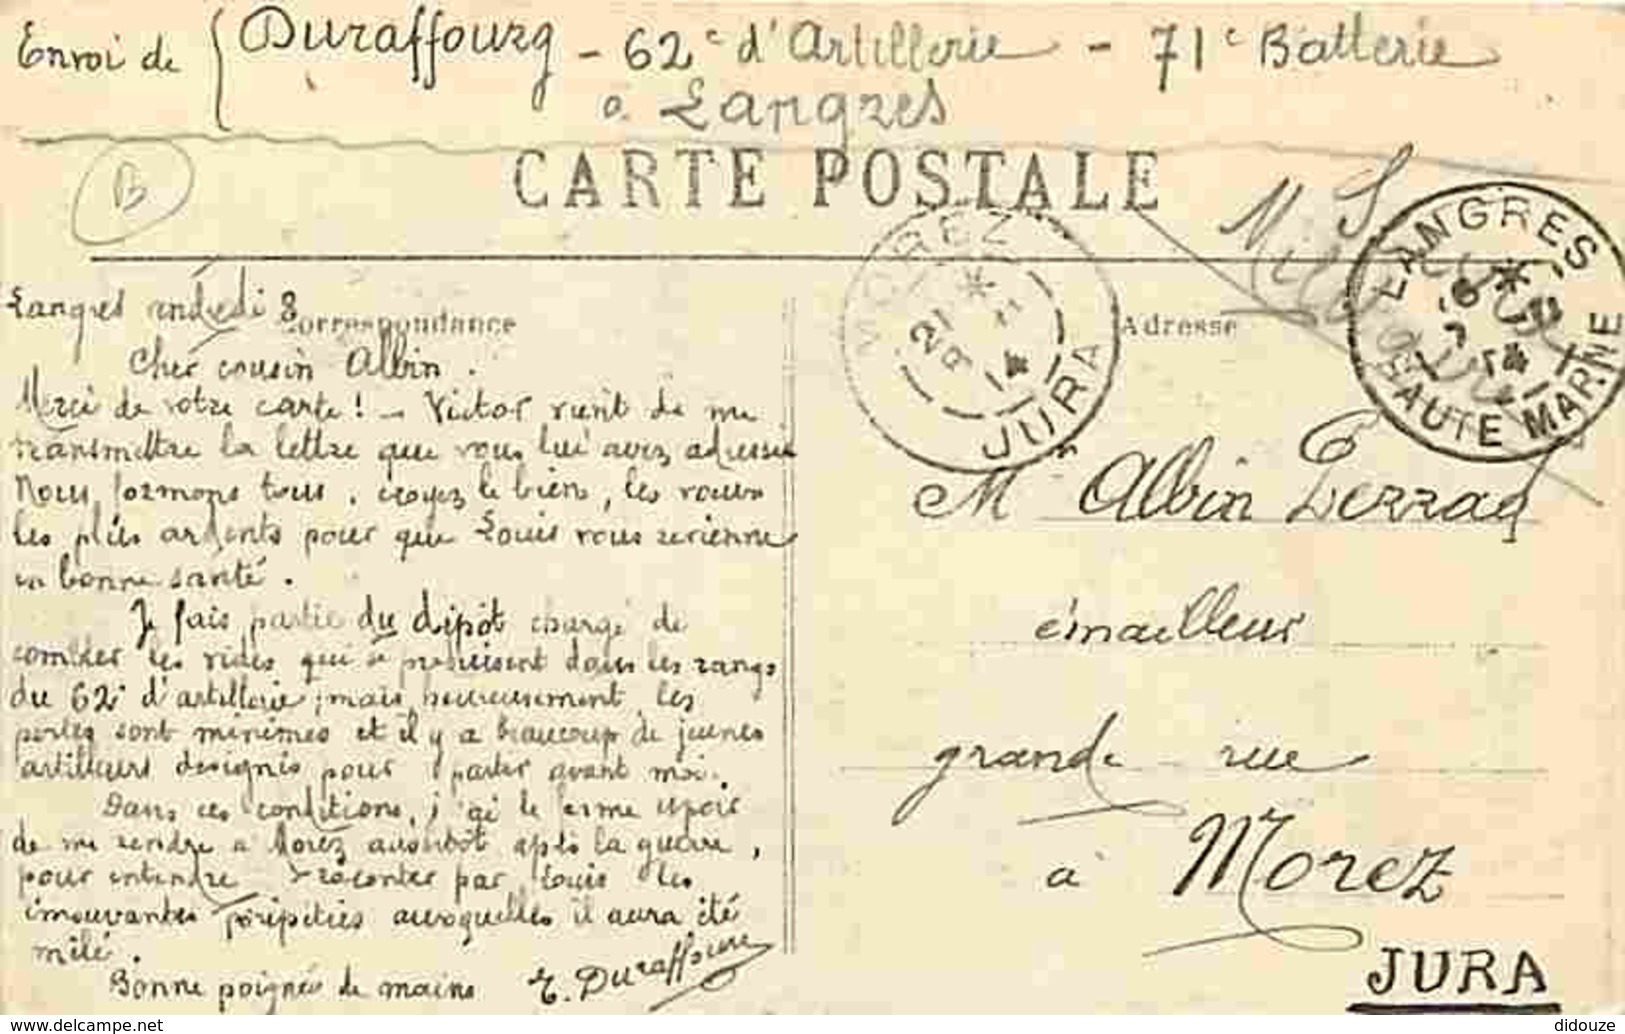 Envoi de { Duraffourg - 62e d'Artillerie - 71e Batterie
à Langres
CARTE POSTALE
B
S
LANGRES
HAUTE MARNE
MOREZ
21
9
14
JURA
Langres endredi 8
Correspondance
Adresse
Cher cousin Albin.
Merci de votre carte ! - Victor vient de me
transmettre la lettre que vous lui avez adressée
Nous formons tous, croyez le bien, les vœux
les plus ardents pour que Louis vous revienne
en bonne santé.
Je fais partie du dépôt chargé de
combler les vides qui se produisent dans les rangs
du 62e d'artillerie ; mais heureusement les
pertes sont minimes et il y a beaucoup de jeunes
artilleurs désignés pour partir avant moi.
Dans ces conditions, j'ai le ferme espoir
de me rendre à Morez aussitôt après la guerre,
pour entendre raconter par Louis les
émouvantes péripéties auxquelles il aura été
mêlé.
Bonne poignée de mains
E. Duraffourg
M Albin
émailleur
grande rue
à Morez
JURA
didouze
www.delcampe.net